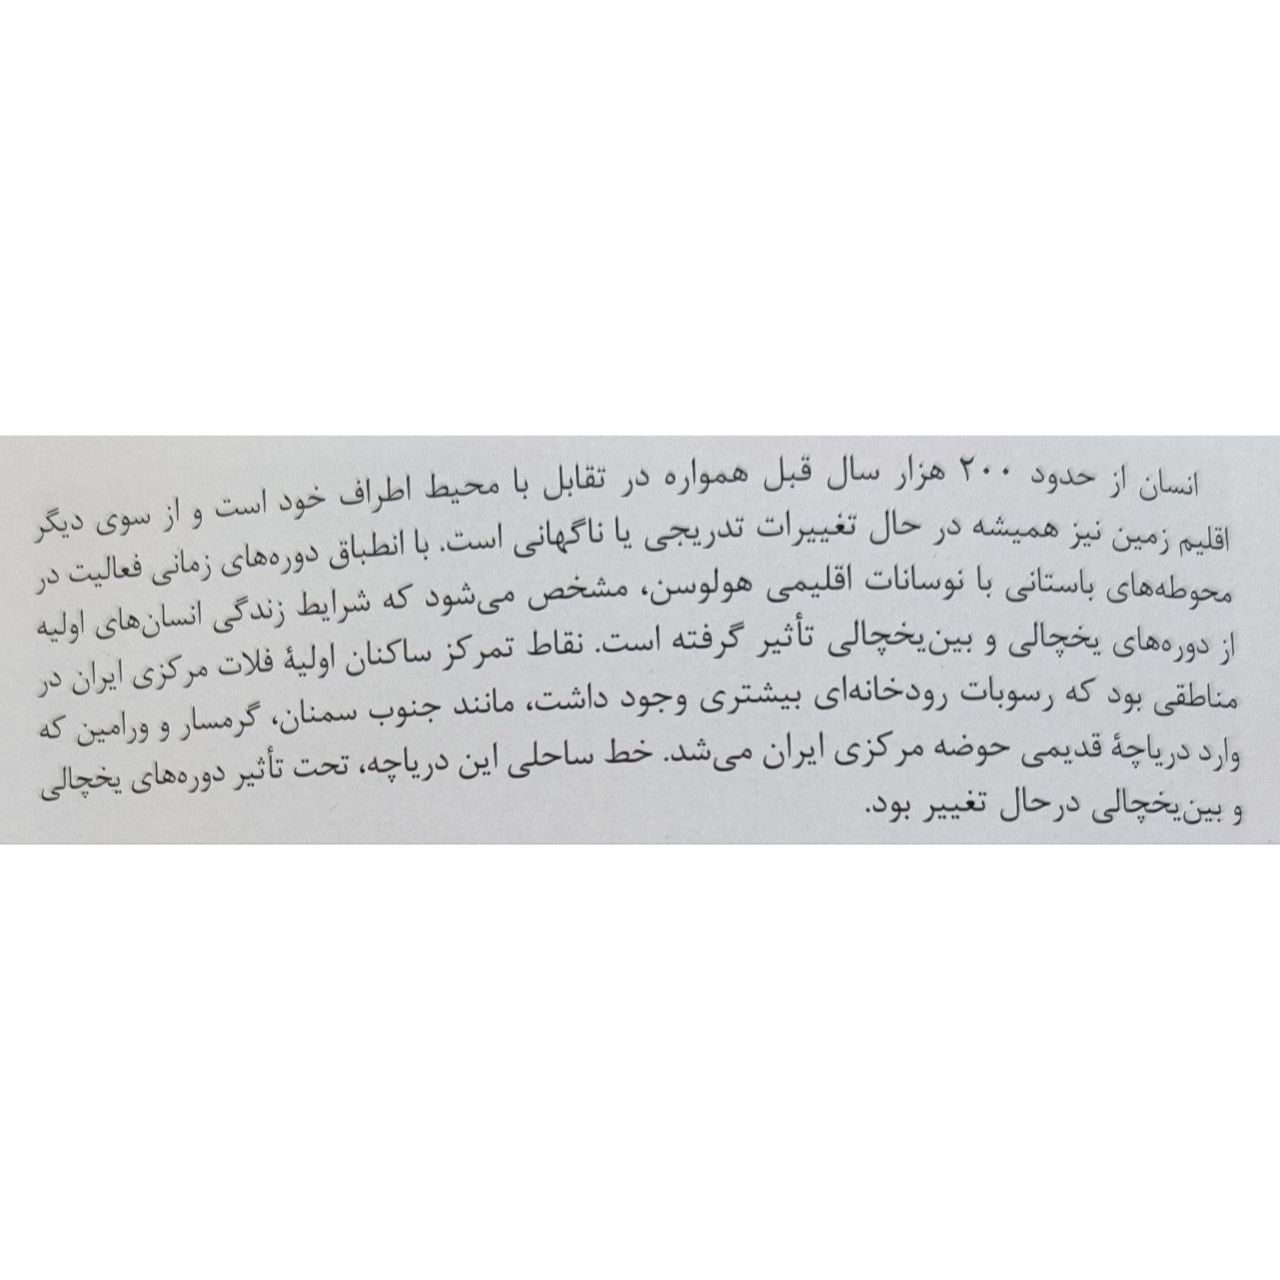 انسان از حدود ۲۰۰ هزار سال قبل همواره در تقابل با محیط اطراف خود است و از سوی دیگر
اقلیم زمین نیز همیشه در حال تغییرات تدریجی یا ناگهانی است. با انطباق دوره‌های زمانی فعالیت در
محوطه‌های باستانی با نوسانات اقلیمی هولوسن، مشخص می‌شود که شرایط زندگی انسان‌های اولیه
از دوره‌های یخچالی و بین‌یخچالی تأثیر گرفته است. نقاط تمرکز ساکنان اولیهٔ فلات مرکزی ایران در
مناطقی بود که رسوبات رودخانه‌ای بیشتری وجود داشت، مانند جنوب سمنان، گرمسار و ورامین که
وارد دریاچهٔ قدیمی حوضه مرکزی ایران می‌شد. خط ساحلی این دریاچه، تحت تأثیر دوره‌های یخچالی
و بین‌یخچالی درحال تغییر بود.